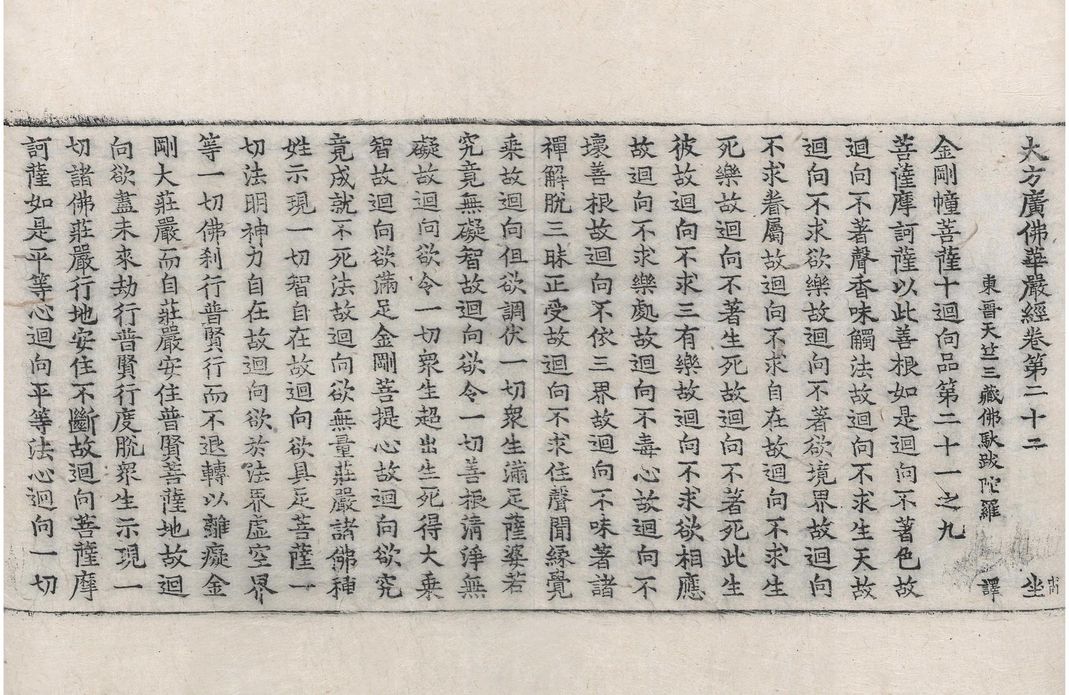 大方廣佛華嚴經卷第二十二 坐
東晉天竺三藏佛馱跋陀羅 譯
金剛幢菩薩十迴向品第二十一之九
菩薩摩訶薩以此善根如是迴向不著色故
迴向不著聲香味觸法故迴向不求生天故
迴向不求欲樂故迴向不著欲境界故迴向
不求眷屬故迴向不求自在故迴向不求生
死樂故迴向不著生死故迴向不著死此生
彼故迴向不求三有樂故迴向不求欲相應
故迴向不求樂處故迴向不毒心故迴向不
壞善根故迴向不依三界故迴向不味著諸
禪解脫三昧正受故迴向不求住聲聞緣覺
乘故迴向但欲調伏一切衆生滿足薩婆若
究竟無礙智故迴向欲令一切善根清淨無
礙故迴向欲令一切衆生超出生死得大乘
智故迴向欲滿足金剛菩提心故迴向欲究
竟成就不死法故迴向欲無量莊嚴諸佛種
姓示現一切智自在故迴向欲具足菩薩一
切法明神力自在故迴向欲於法界虛空界
等一切佛刹行普賢行而不退轉以離癡金
剛大莊嚴而自莊嚴安住普賢菩薩地故迴
向欲蓋未來劫行普賢行度脫衆生示現一
切諸佛莊嚴行地安住不斷故迴向菩薩摩
訶薩如是平等心迴向平等法心迴向一切